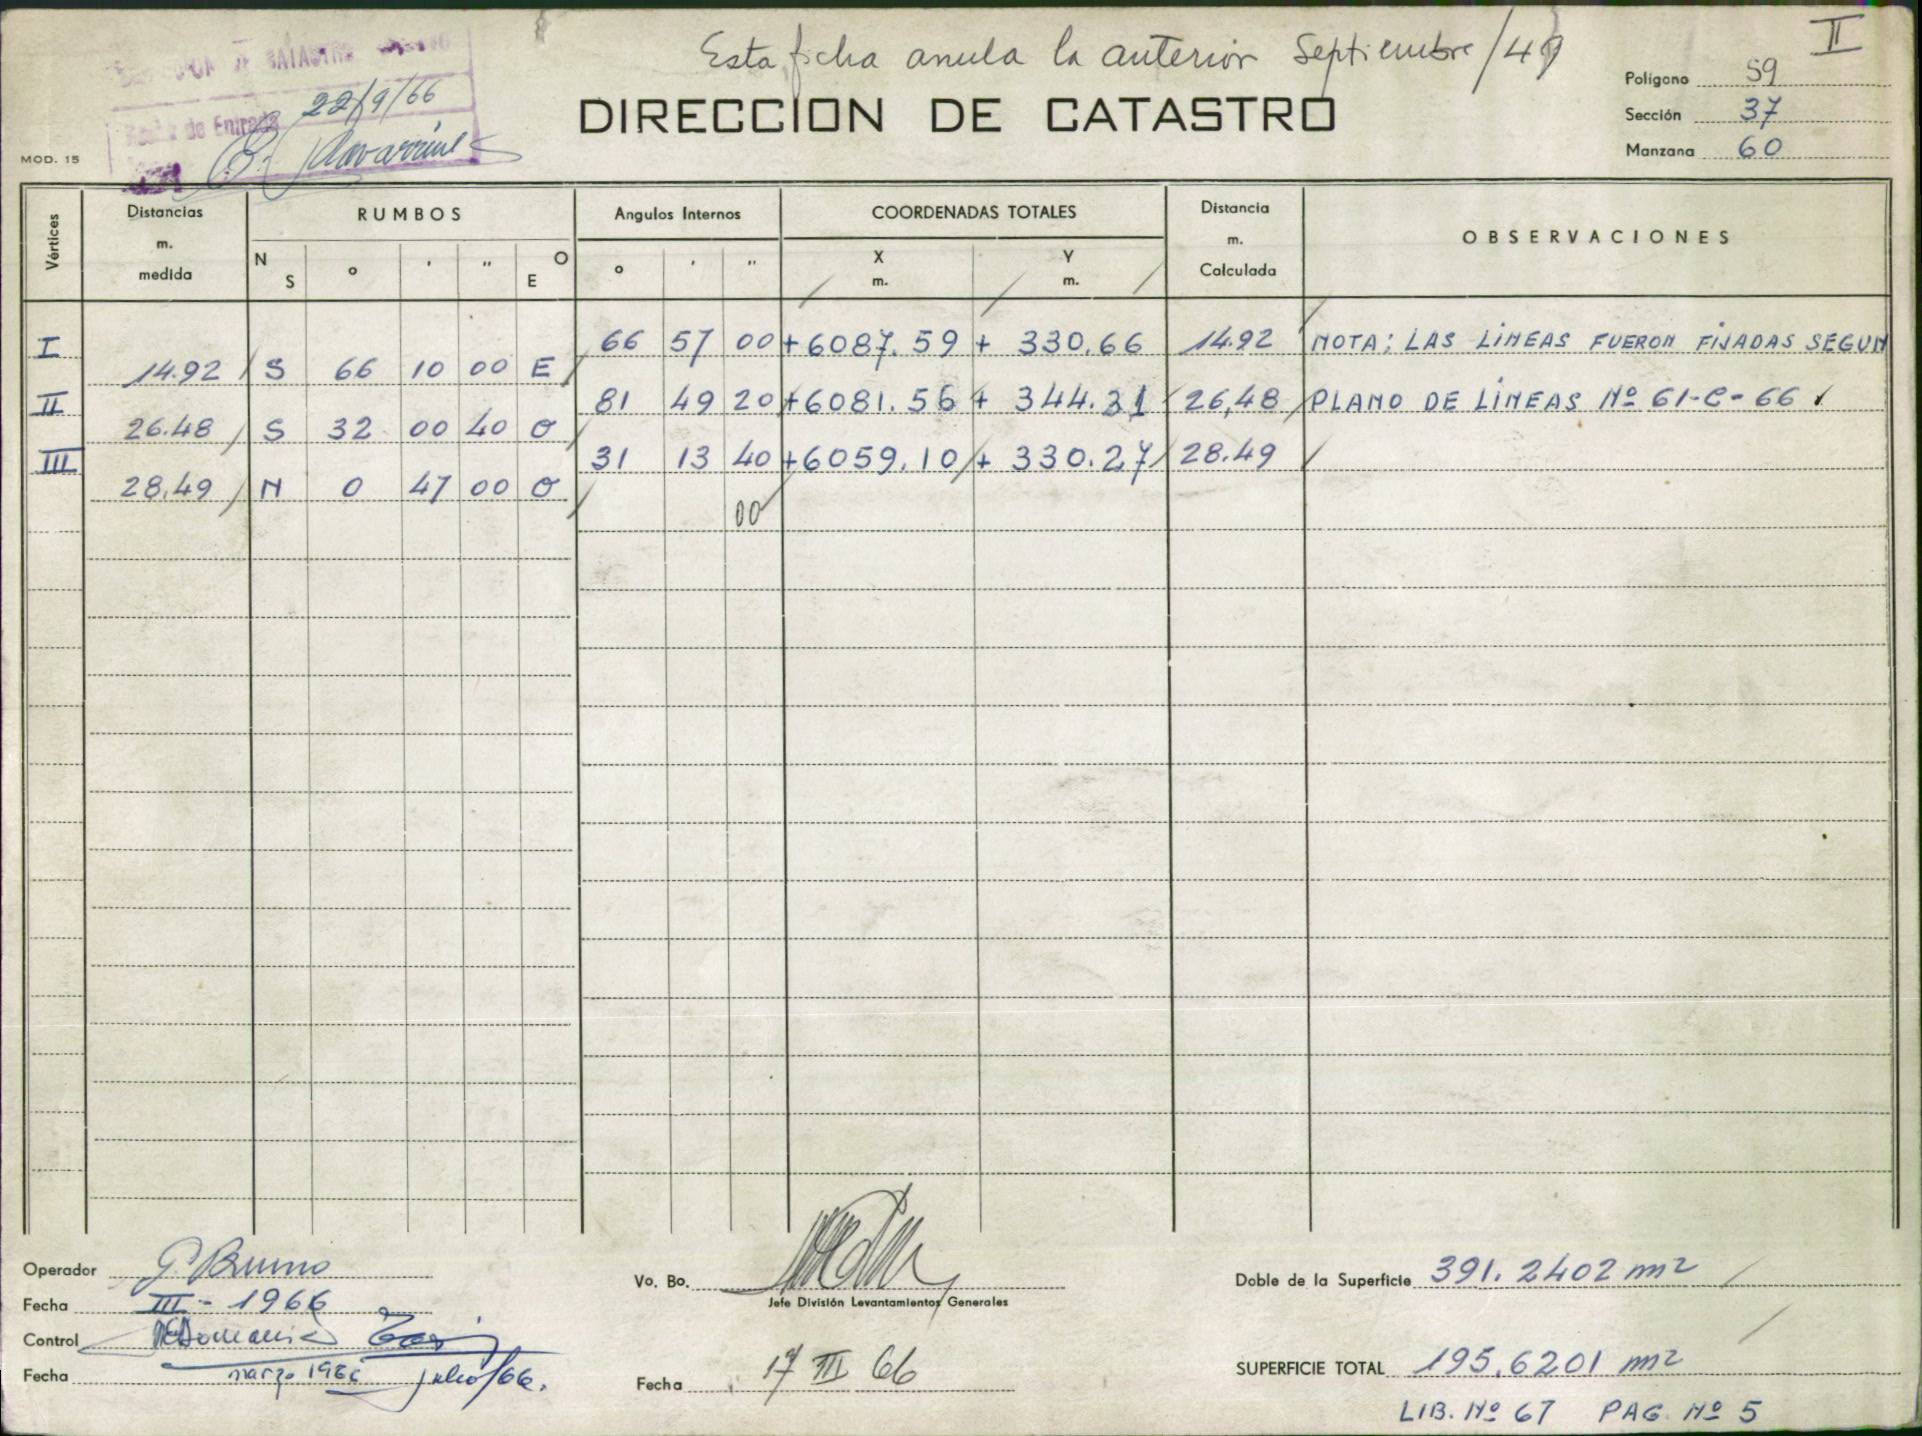 Esta ficha anula la anterior Septiembre/49
II
DE CATASTRO
22/9/66
de Entrada
MOD. 15
DIRECCION DE CATASTRO
Polígono 59
Sección 37
Manzana 60
Vértices Distancias m. medida RUMBOS Angulos Internos COORDENADAS TOTALES Distancia m. Calculada OBSERVACIONES
N S ° ' " O E ° ' " X m. Y m.
I 66 57 00 +6087.59 + 330.66 14.92 NOTA: LAS LINEAS FUERON FIJADAS SEGUN
14.92 S 66 10 00 E
II 81 49 20 +6081.56 + 344.31 26,48 PLANO DE LINEAS Nº 61-C-66
26.48 S 32 00 40 O
III 31 13 40 +6059.10 + 330.27 28.49
28.49 N 0 47 00 O
00
Operador G. Bruno
Fecha III - 1966
Control
Fecha marzo 1966 julio/66.
Vo. Bo.
Jefe División Levantamientos Generales
Fecha 17 III 66
Doble de la Superficie 391.2402 m2
SUPERFICIE TOTAL 195,6201 m2
LIB. Nº 67 PAG. Nº 5